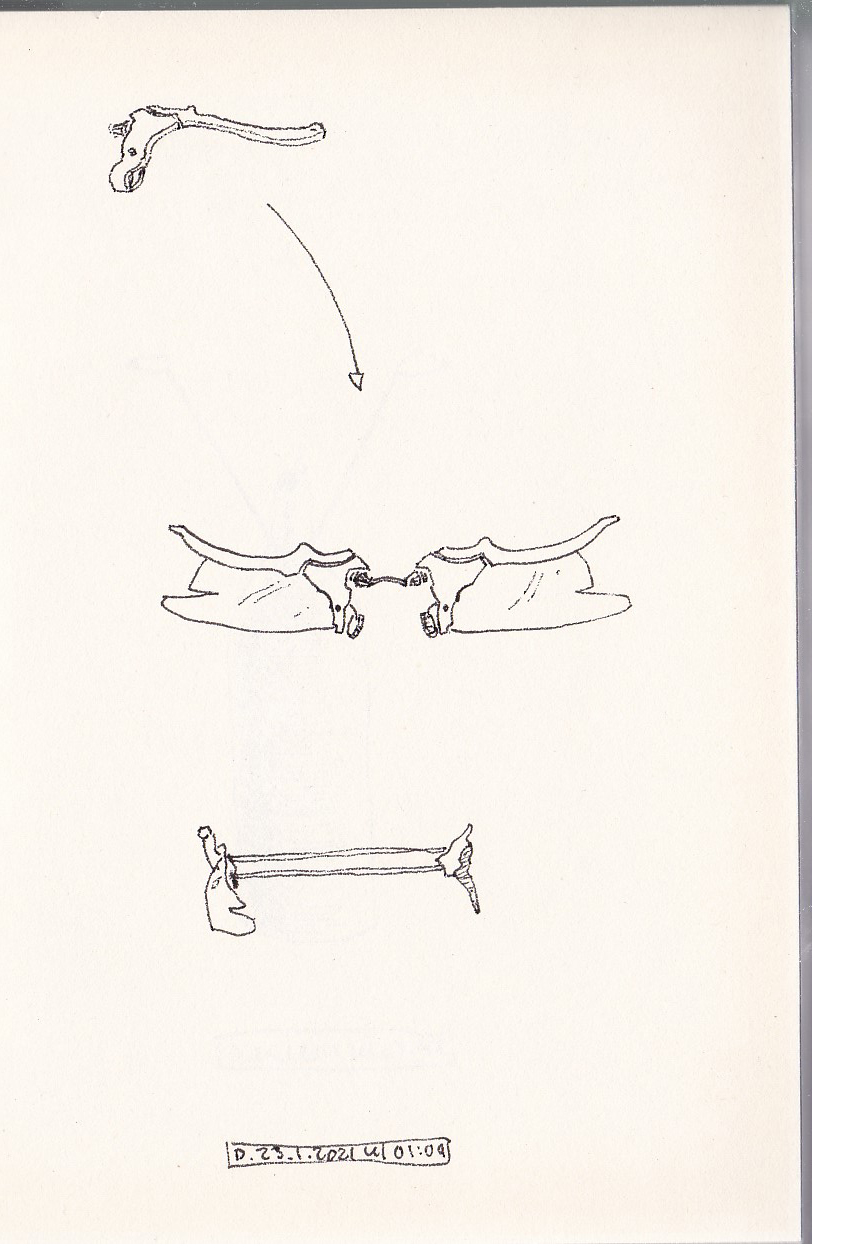 D. 23.1.2021 kl 01:09